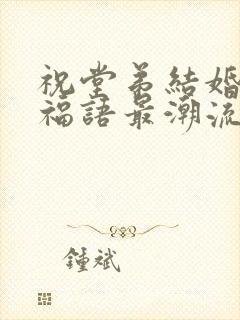 祝堂弟結婚
福語最潮流
鍾斌